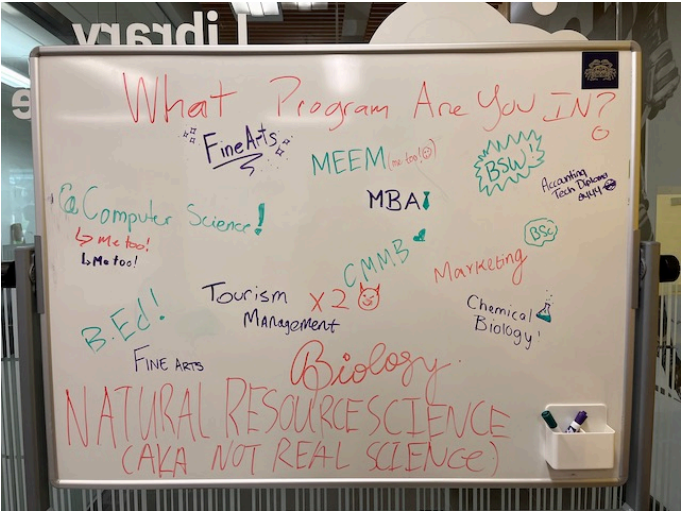 Library
What Program Are You IN?
Fine Arts
MEEM (me too!)
BSW!
Accounting
Tech Diploma
ayyy
MBA
Computer Science!
↳ Me too!
↳ Me too!
BSc
CMMB
Marketing
Tourism
Management
x2
Chemical
Biology!
B.Ed!
FINE ARTS
Biology.
NATURAL RESOURCE SCIENCE
(AKA NOT REAL SCIENCE)